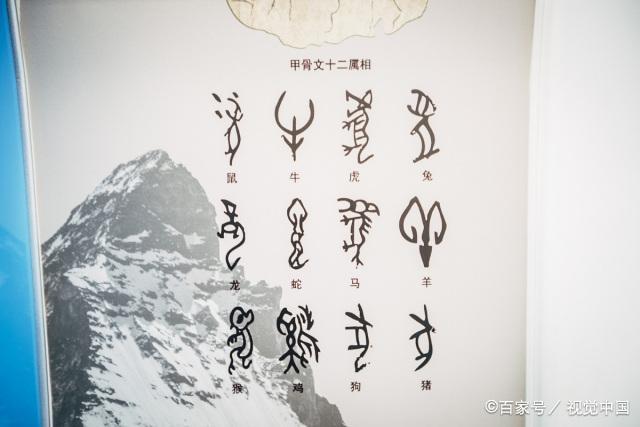 甲骨文十二属相
鼠 牛 虎 兔
龙 蛇 马 羊
猴 鸡 狗 猪
©百家号／视觉中国